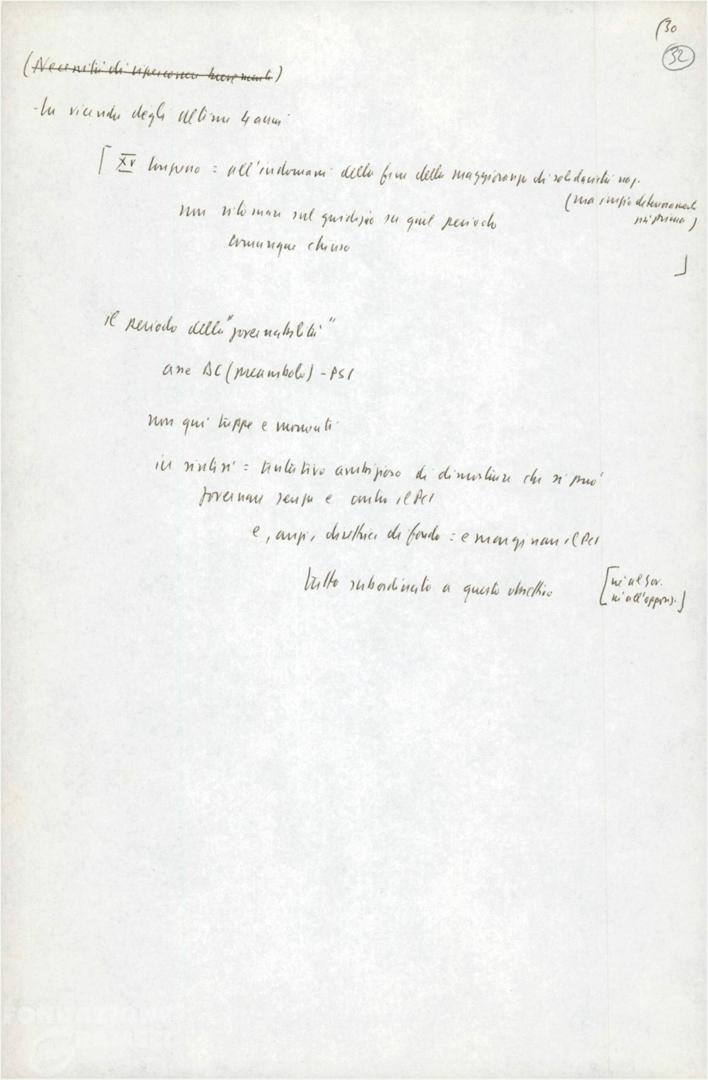 (30
32
(Necessità di ripercorrere brevemente)
- La vicenda degli ultimi 4 anni
[ XV Congresso = all'indomani della fine della maggioranza di solidarietà naz.
(ma crisi deterioramento
più prima)
non ritornare sul giudizio su quel periodo
comunque chiuso
]
il periodo della "governabilità"
asse DC (preambolo) - PSI
non qui tappe e momenti
in sintesi = tentativo ambizioso di dimostrare che si può
governare senza e contro il PCI
e, anzi, direttrice di fondo = emarginare il PCI
tutto subordinato a questo obiettivo
[né al Gov.
né all'opposiz.]
FONDAZIONE